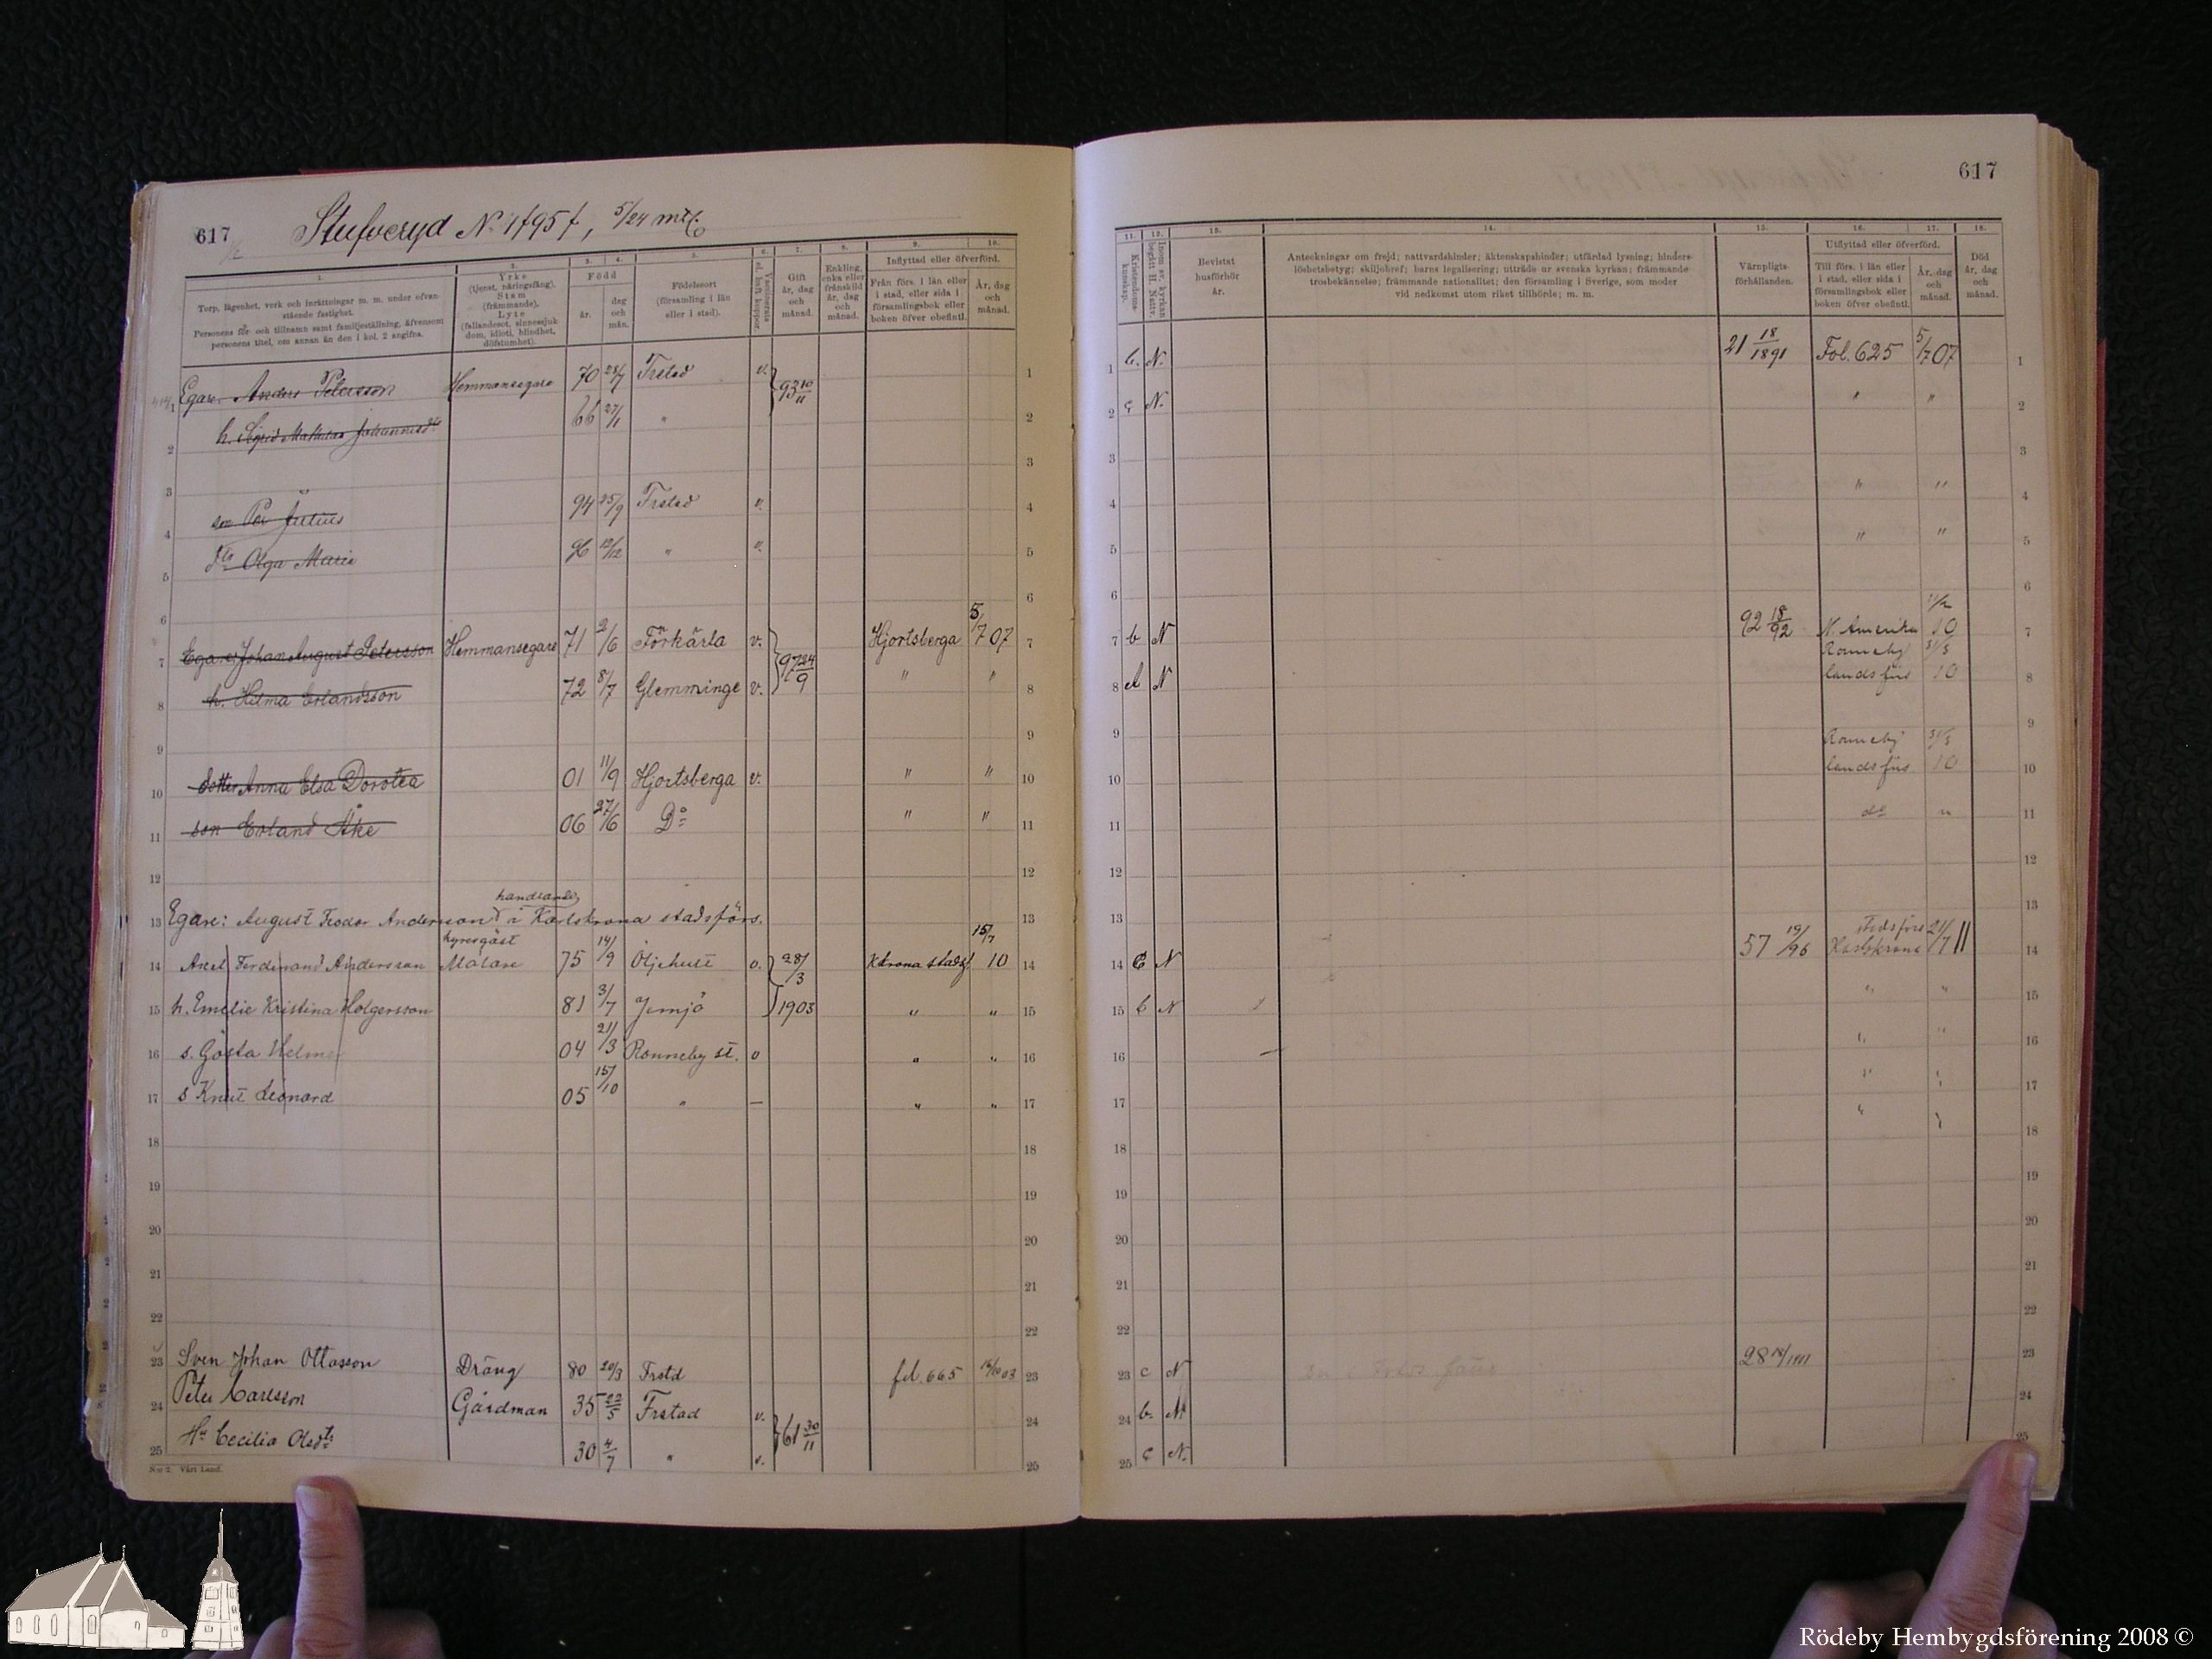 617
Stufveryd N: 1795 f, 5/24 mtl
617
1. 2. 3. 4. 5. 6. 7. 8. 9. 10.
11. 12. 13. 14. 15. 16. 17. 18.
Torp, lägenhet, verk och inrättningar m. m. under ofvanstående fastighet.
Personens för- och tillnamn samt familjeställning, äfvensom personens titel, om annan än den i kol. 2 angifna.
Yrke (tjenst, näringsfång). Stam (främmande). Lyte (fallandesot, sinnessjukdom, idioti, blindhet, döfstumhet).
Född
år. dag och mån.
Födelseort (församling i län eller i stad).
Gift år, dag och månad.
Enkling, enka eller frånskild år, dag och månad.
Inflyttad eller öfverförd.
Från förs. i län eller i stad, eller sida i församlingsbok eller boken öfver obefintl.
År, dag och månad.
Kristendomskunskap.
Inom sv. kyrkan begått H. Nattv.
Bevistat husförhör år.
Anteckningar om frejd; nattvardshinder; äktenskapshinder; utfärdad lysning; hinderslöshetsbetyg; skiljobref; barns legalisering; utträde ur svenska kyrkan; främmande trosbekännelse; främmande nationalitet; den församling i Sverige, som moder vid nedkomst utom riket tillhörde; m. m.
Värnpligtsförhållanden.
Utflyttad eller öfverförd.
Till förs. i län eller i stad, eller sida i församlingsbok eller boken öfver obefintl.
År, dag och månad.
Död år, dag och månad.
1 Egare: Anders Petersson Hemmansegare 70 28/7 Frstad v. 93 10/11 1 b. N. 21 18/1891 Fol. 625 5/7 07 1
2 h. Sigrid Mathilda Johannisdtr 66 27/1 " 2 c N. " " 2
3
4 son Per Julius 94 25/9 Frstad v. 4 " " 4
5 dtr Olga Maria 96 12/12 " v. 5 " " 5
6
7 Egare: Johan August Petersson Hemmansegare 71 2/6 Förkärla v. 97 24/9 Hjortsberga 5/7 07 7 b N 92 18/92 N. Amerika 10 7
8 h. Hilma Erlandsson 72 8/7 Glemminge v. " " 8 N Ronneby landsförs 31/3 10 8
9
10 dotter Anna Elsa Dorotea 01 11/9 Hjortsberga v. " " 10 Ronneby landsförs 31/3 10 10
11 son Erland Åke 06 27/6 Do " " 11 do " 11
12
handlande
13 Egare: August Feodor Andersson i Karlskrona stadsförs. 13
hyresgäst
14 Axel Ferdinand Andersson Målare 75 14/9 Öljehult v. 28/3 Kkrona stadsf. 15/7 10 14 N 57 19/96 stadsförs Karlskrona 21/7 11 14
15 h. Emelie Kristina Holgersson 81 3/7 Jemjö 1903 " " 15 b N " " 15
16 s. Gösta Helmer 04 21/3 Ronneby st. v " " 16 " " 16
17 s Knut Leonard 05 15/10 " — " " 17 " " 17
18
19
20
21
22
23 Sven Johan Ottosson Dräng 80 20/3 Frstd fol. 665 03 23 c N 28 18/1901 23
24 Peter Carlsson Gårdman 35 22/5 Frstad v. 61 30/11 24 b. N. 24
25 Hu Cecilia Olsdtr 30 4/7 " v. 25 c N. 25
N:o 2. Vårt Land.
Rödeby Hembygdsförening 2008 ©